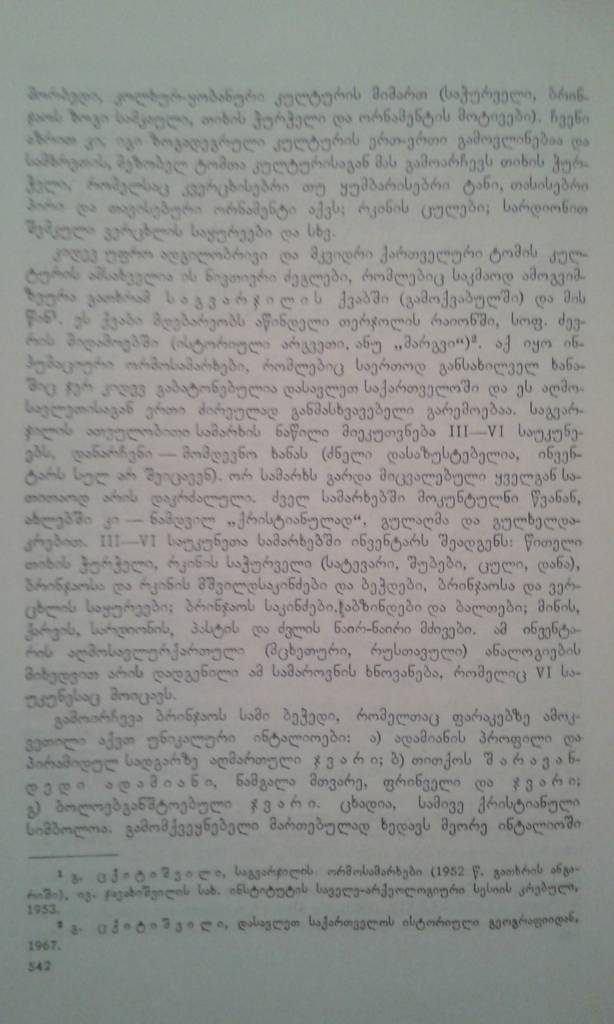 მორბედი, კოლხურ-ყობანური კულტურის მიმართ (საჭურველი, ბრინ-
ჯაოს ზოგი სამკაული, თიხის ჭურჭელი და ორნამენტის მოტივები). ჩვენი
აზრით კი, იგი ზოგადეგრული კულტურის ერთ-ერთი გამოვლინებაა და
სამხრეთის, მეზობელ ტომთა კულტურისაგან მას გამოარჩევს თიხის ჭურ-
ჭელი, რომელსაც კვერცხისებრი თუ ყუმბარისებრი ტანი, თასისებრი
პირი და თავისებური ორნამენტი აქვს; რკინის ცულები; სარდიონით
შემკული ვერცხლის საყურეები და სხვ.
კიდევ უფრო ადგილობრივი და მკვიდრი ქართველური ტომის კულ-
ტურის ამსახველია ის ნივთიერი ძეგლები, რომლებიც საკმაოდ ამოგვიმ-
ზეურა გათხრამ საგვარჯილის ქვაბში (გამოქვაბულში) და მის
წინ¹. ეს ქვაბი მდებარეობს აწინდელი თერჯოლის რაიონში, სოფ. ძევ-
რის მიდამოებში (ისტორიული არგვეთი, ანუ „მარგვი“)². აქ იყო ინ-
ჰუმაციური ორმოსამარხები, რომლებიც საერთოდ განსახილველ ხანა-
შიც ჯერ კიდევ გაბატონებულია დასავლეთ საქართველოში და ეს აღმო-
სავლეთისაგან ერთი ძირეულად განმასხვავებელი გარემოებაა. საგვარ-
ჯილის ათეულობითი სამარხის ნაწილი მიეკუთვნება III—VI საუკუნე-
ებს, დანარჩენი — მომდევნო ხანას (ძნელი დასაზუსტებელია, ინვენ-
ტარს სულ არ შეიცავენ). ორ სამარხს გარდა მიცვალებული ყველგან სა-
თითაოდ არის დაკრძალული. ძველ სამარხებში მოკუნტულნი წვანან,
ახლებში კი — ნამდვილ „ქრისტიანულად“, გულაღმა და გულხელდა-
კრებით. III—VI საუკუნეთა სამარხებში ინვენტარს შეადგენს: წითელი
თიხის ჭურჭელი, რკინის საჭურველი (სატევარი, შუბები, ცული, დანა),
ბრინჯაოსა და რკინის მშვილდსაკინძები და ბეჭდები, ბრინჯაოსა და ვერ-
ცხლის საყურეები; ბრინჯაოს საკინძები, ჭაბზინდები და ბალთები; მინის,
ქარვის, სარდიონის, პასტის და ძვლის ნაირ-ნაირი მძივები. ამ ინვენტა-
რის აღმოსავლურქართული (მცხეთური, რუსთავული) ანალოგიების
მიხედვით არის დადგენილი ამ სამაროვნის ხნოვანება, რომელიც VI სა-
უკუნესაც მოიცავს.
გამოირჩევა ბრინჯაოს სამი ბეჭედი, რომელთაც ფარაკებზე ამოკ-
ვეთილი აქვთ უნიკალური ინტალიოები: ა) ადამიანის პროფილი და
პირამიდულ სადგარზე აღმართული ჯვარი; ბ) თითქოს შარავან-
დედი ადამიანი, ნამგალა მთვარე, ფრინველი და ჯვარი;
გ) ბოლოებგანშტოებული ჯვარი. ცხადია, სამივე ქრისტიანული
სიმბოლოა. გამომქვეყნებელი მართებულად ხედავს მეორე ინტალიოში
¹ გ. ცქიტიშვილი, საგვარჯილის ორმოსამარხები (1952 წ. გათხრის ანგა-
რიში), ივ. ჯავახიშვილის სახ. ინსტიტუტის საველე-არქეოლოგიური სესიის კრებული,
1953.
² გ. ცქიტიშვილი, დასავლეთ საქართველოს ისტორიული გეოგრაფიიდან,
1967.
542